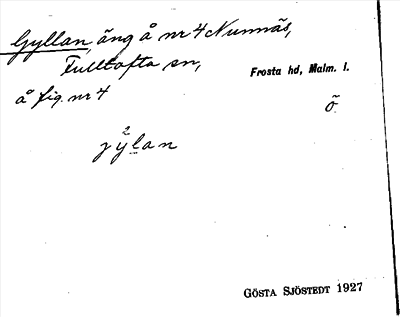 Gyllan, äng å nr 4 Nunnäs,
Fulltofta sn,
Frosta hd, Malm. l.
å fig. nr 4
õ
GÖSTA SJÖSTEDT 1927